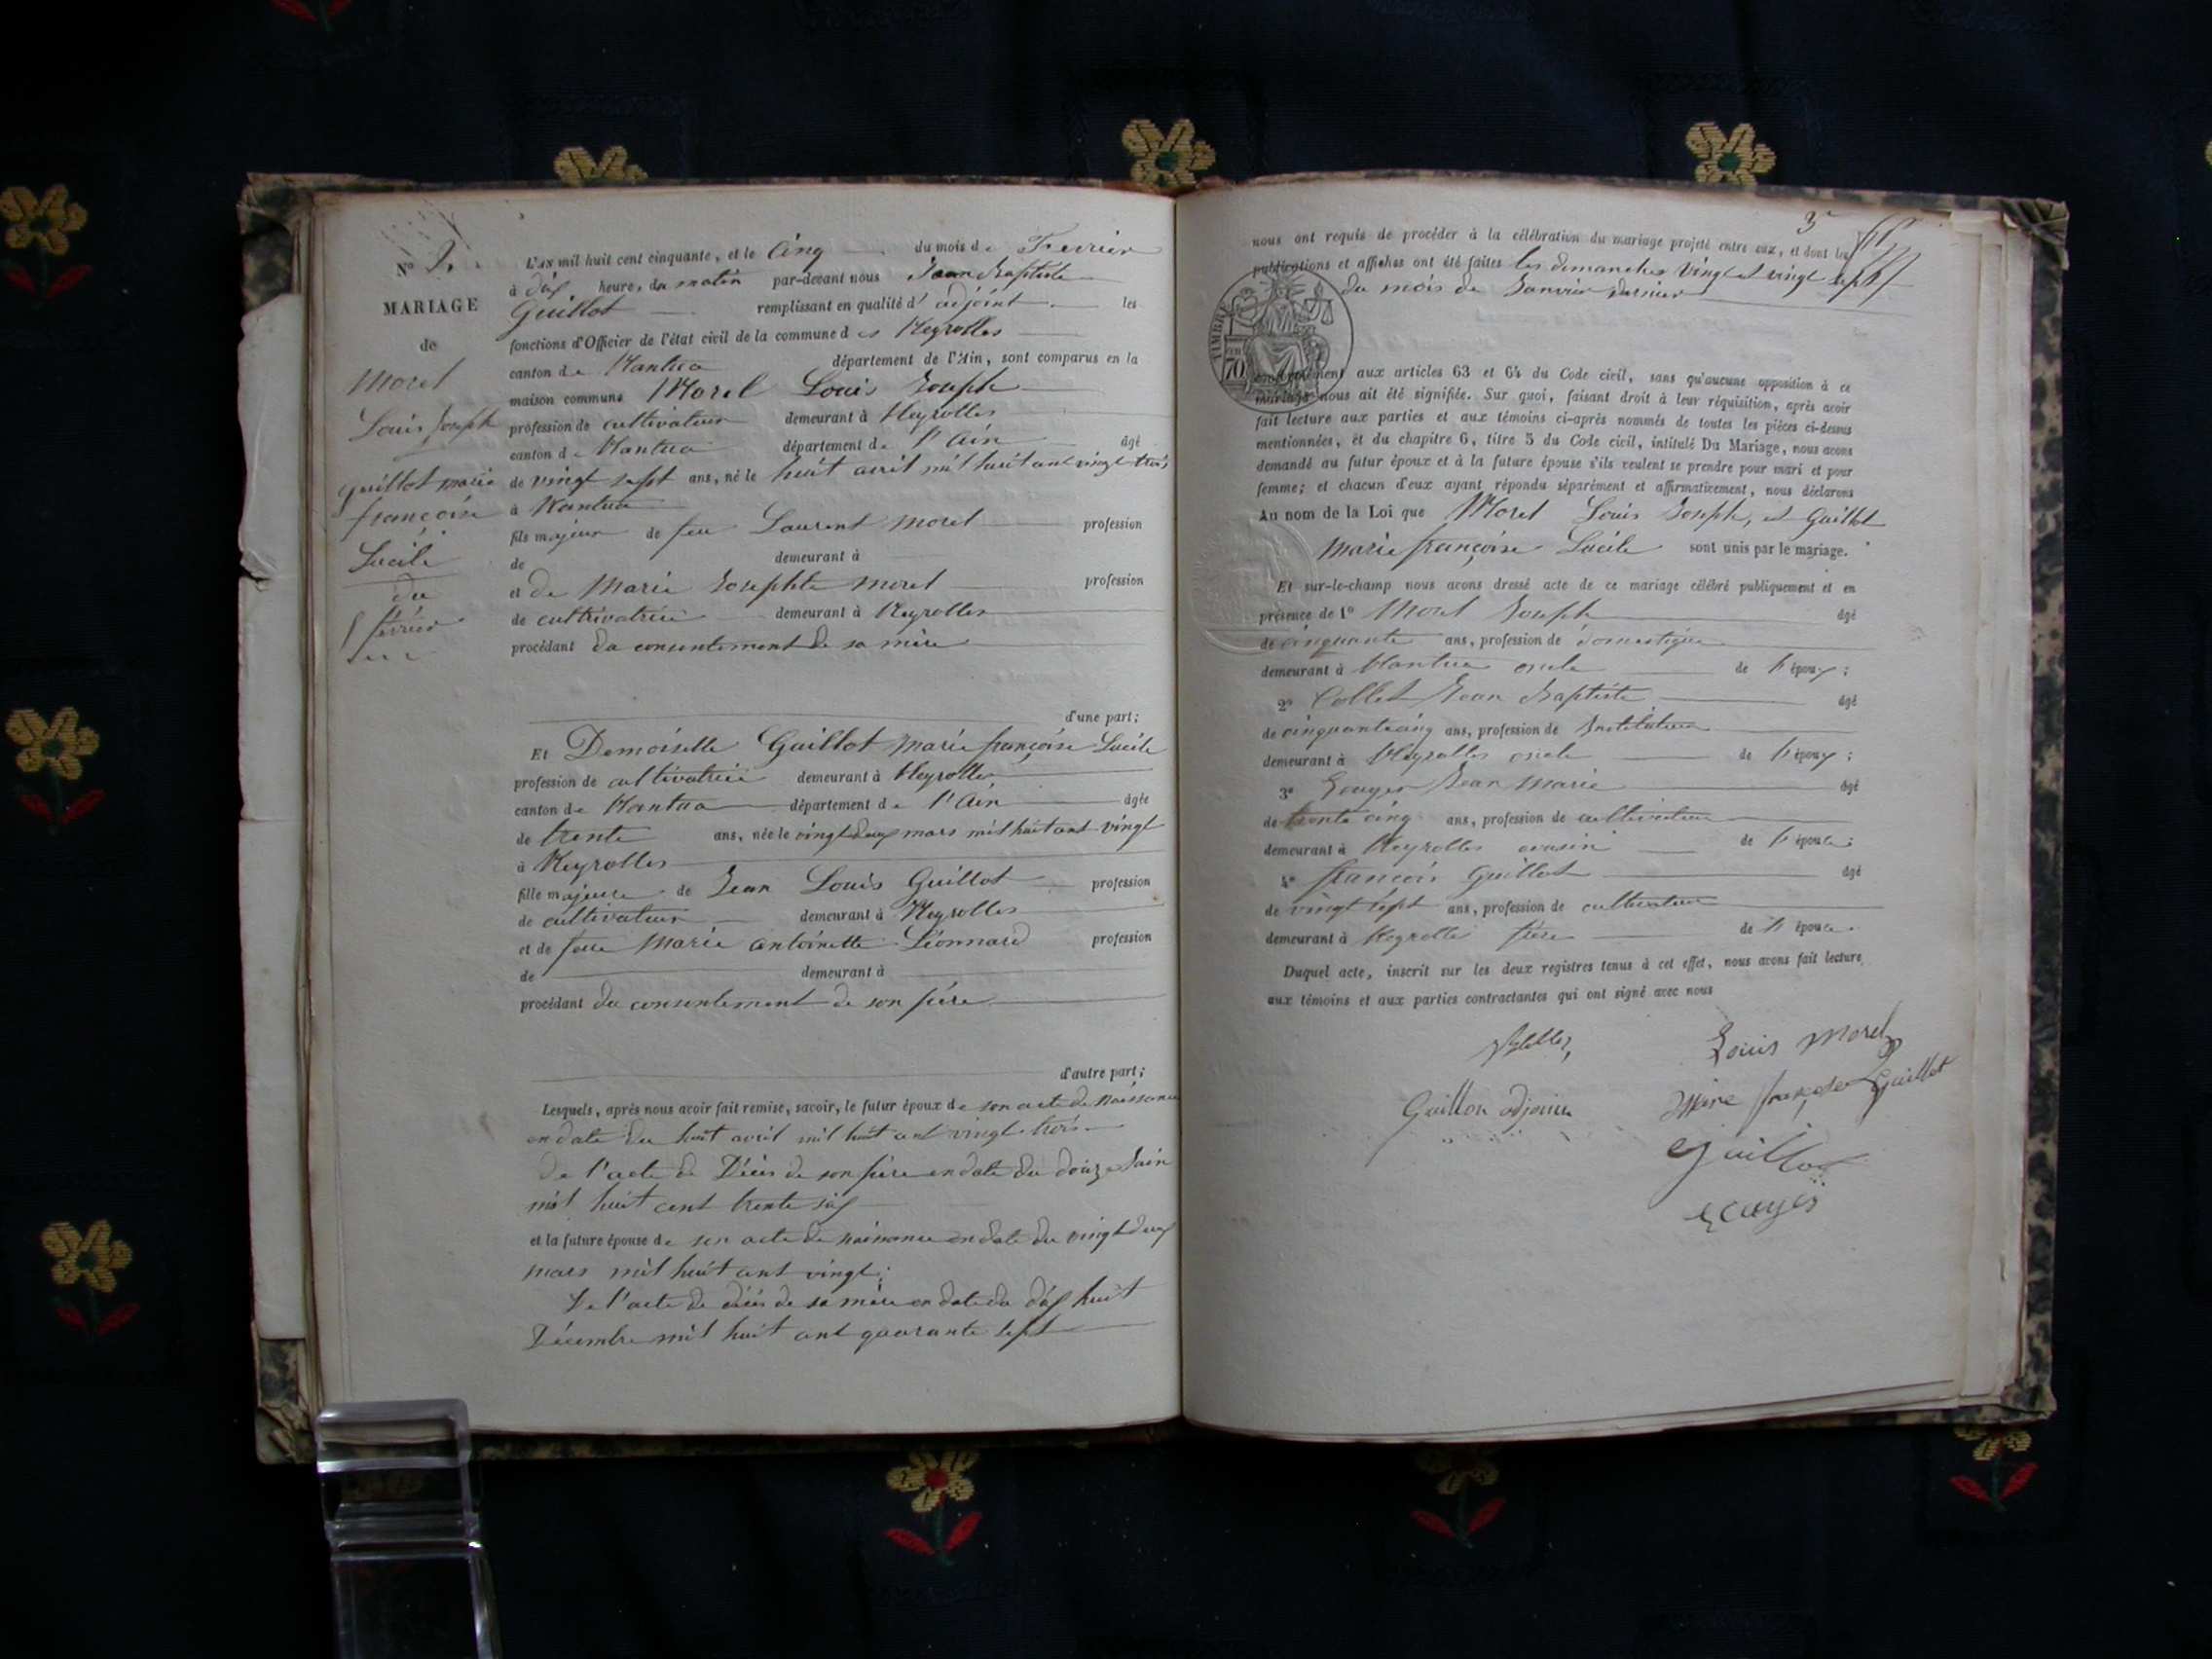 N° 2.
MARIAGE
de
Morel
Louis Joseph
guillot marie
françoise
Lucile
du
5 février
L'AN mil huit cent cinquante, et le Cinq du mois de Fevrier
à dix heure, du matin par-devant nous Jean Baptiste
Guillot remplissant en qualité d'adjoint les
fonctions d'Officier de l'état civil de la commune des Neyrolles
canton de Nantua département de l'Ain, sont comparus en la
maison commune Morel Louis Joseph
profession de cultivateur demeurant à Neyrolles
canton de Nantua département de l'Ain âgé
de vingt sept ans, né le huit avril mil huit cent vingt trois
à Nantua
fils majeur de feu Laurent Morel profession
de demeurant à
et de Marie Josephte morel profession
de cultivatrice demeurant à Neyrolles
procédant du consentement de sa mère
d'une part;
Et Demoiselle Guillot Marie françoise Lucile
profession de cultivatrice demeurant à Neyrolles
canton de Nantua département de l'Ain âgée
de trente ans, née le vingt deux mars mil huit cent vingt
à Neyrolles
fille majeure de Jean Louis Guillot profession
de cultivateur demeurant à Neyrolles
et de feue Marie antoinette Léonnard profession
de demeurant à
procédant du consentement de son père
d'autre part;
Lesquels, après nous avoir fait remise, savoir, le futur époux de son acte de naissance
en date du huit avril mil huit cent vingt trois
De l'acte de Décès de son père en date du douze Juin
mil huit cent trente six
et la future épouse de son acte de naissance en date du vingt deux
mars mil huit cent vingt;
De l'acte de décès de sa mère en date du dix huit
Décembre mil huit cent quarante sept
3
nous ont requis de procéder à la célébration du mariage projeté entre eux, et dont les
publications et affiches ont été faites les dimanches vingt et vingt sept
du mois de Janvier dernier
TIMBRE
70
conformément aux articles 63 et 64 du Code civil, sans qu'aucune opposition à ce
mariage nous ait été signifiée. Sur quoi, faisant droit à leur réquisition, après avoir
fait lecture aux parties et aux témoins ci-après nommés de toutes les pièces ci-dessus
mentionnées, et du chapitre 6, titre 5 du Code civil, intitulé Du Mariage, nous avons
demandé au futur époux et à la future épouse s'ils veulent se prendre pour mari et pour
femme; et chacun d'eux ayant répondu séparément et affirmativement, nous déclarons
Au nom de la Loi que Morel Louis Joseph, et Guillot
Marie françoise Lucile sont unis par le mariage.
Et sur-le-champ nous avons dressé acte de ce mariage célébré publiquement et en
présence de 1° Morel Joseph âgé
de cinquante ans, profession de domestique
demeurant à Nantua oncle de l'époux;
2° Collet Jean Baptiste âgé
de cinquante cinq ans, profession de Instituteur
demeurant à Neyrolles oncle de l'époux;
3° Jean Marie âgé
de trente cinq ans, profession de cultivateur
demeurant à Neyrolles cousin de l'épouse;
4° francois Guillot âgé
de vingt sept ans, profession de cultivateur
demeurant à Neyrolles frère de l'épouse.
Duquel acte, inscrit sur les deux registres tenus à cet effet, nous avons fait lecture
aux témoins et aux parties contractantes qui ont signé avec nous
Louis Morel
Guillot
Guillot adjoint
Guillot